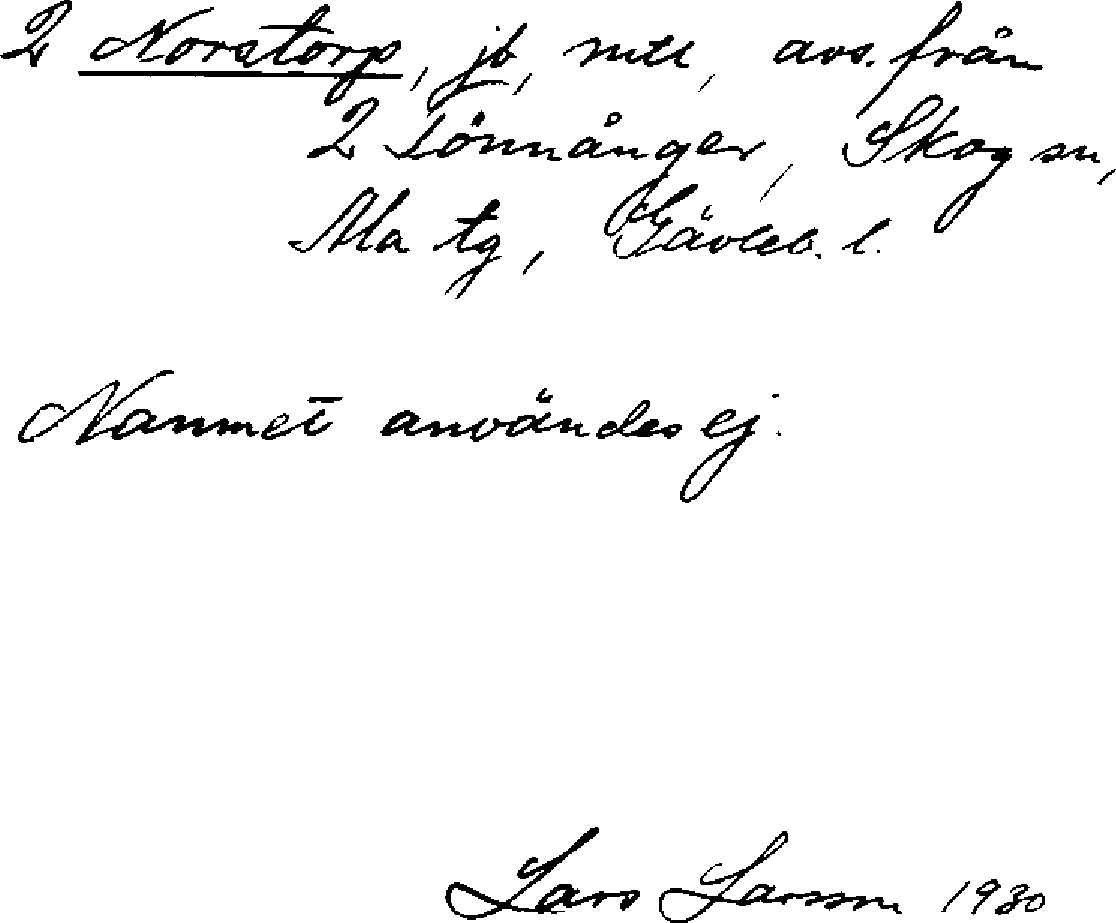 2 Norstorp, jb, mtl, avs. från
2 Tönnånger, Skog sn,
Ala tg, Gävleb. l.
Namnet användes ej.
Lars Larsson 1930